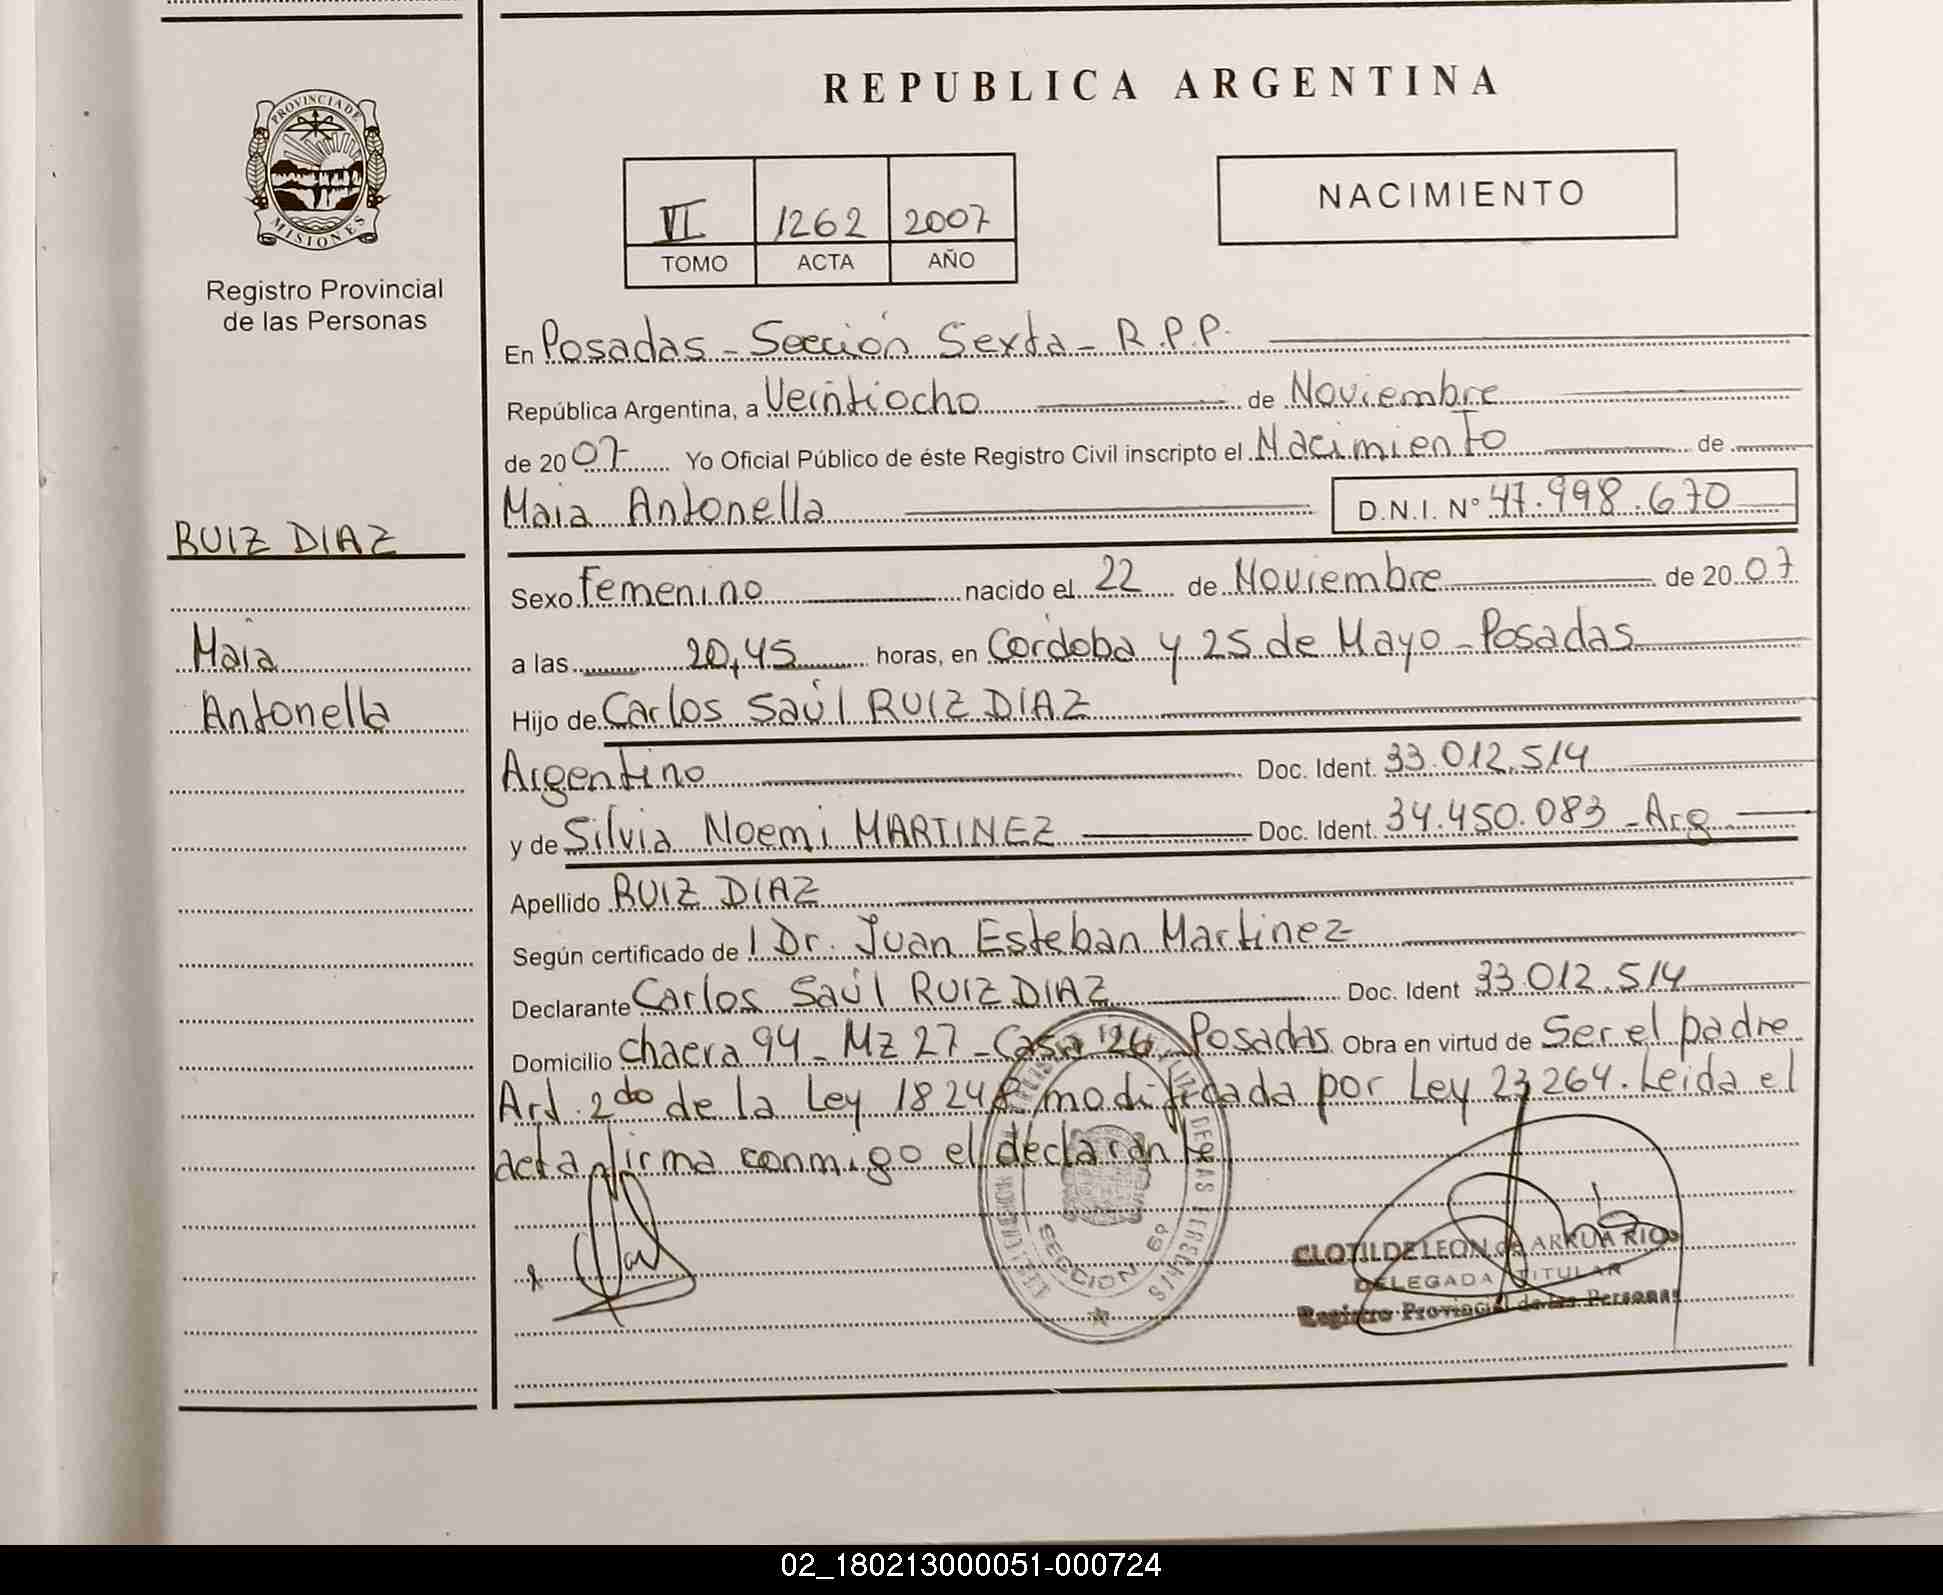 REPUBLICA ARGENTINA
PROVINCIA DE
MISIONES
Registro Provincial
de las Personas
VI 1262 2007
TOMO ACTA AÑO
NACIMIENTO
En Posadas - Sección Sexta - R.P.P.
República Argentina, a Veintiocho de Noviembre
de 2007 Yo Oficial Público de éste Registro Civil inscripto el Nacimiento de
Maia Antonella D.N.I. N° 47.998.670
RUIZ DIAZ
Maia
Antonella
Sexo femenino nacido el 22 de Noviembre de 2007
a las 20,45 horas, en Córdoba y 25 de Mayo - Posadas
Hijo de Carlos Saúl RUIZ DIAZ
Argentino Doc. Ident. 33.012.514
y de Silvia Noemi MARTINEZ Doc. Ident. 34.450.083 - Arg
Apellido RUIZ DIAZ
Según certificado de l Dr. Juan Esteban Martinez
Declarante Carlos Saúl RUIZ DIAZ Doc. Ident 33.012.514
Domicilio chacra 94 - Mz 27 - Casa 26 - Posadas Obra en virtud de Ser el padre
Art. 2do de la Ley 18248 modificada por Ley 23264. Leida el
acta firma conmigo el declarante
SECCION 6ª
CLOTILDE LEON de ARRUA RIOS
DELEGADA TITULAR
Registro Provincial de las Personas
02_180213000051-000724